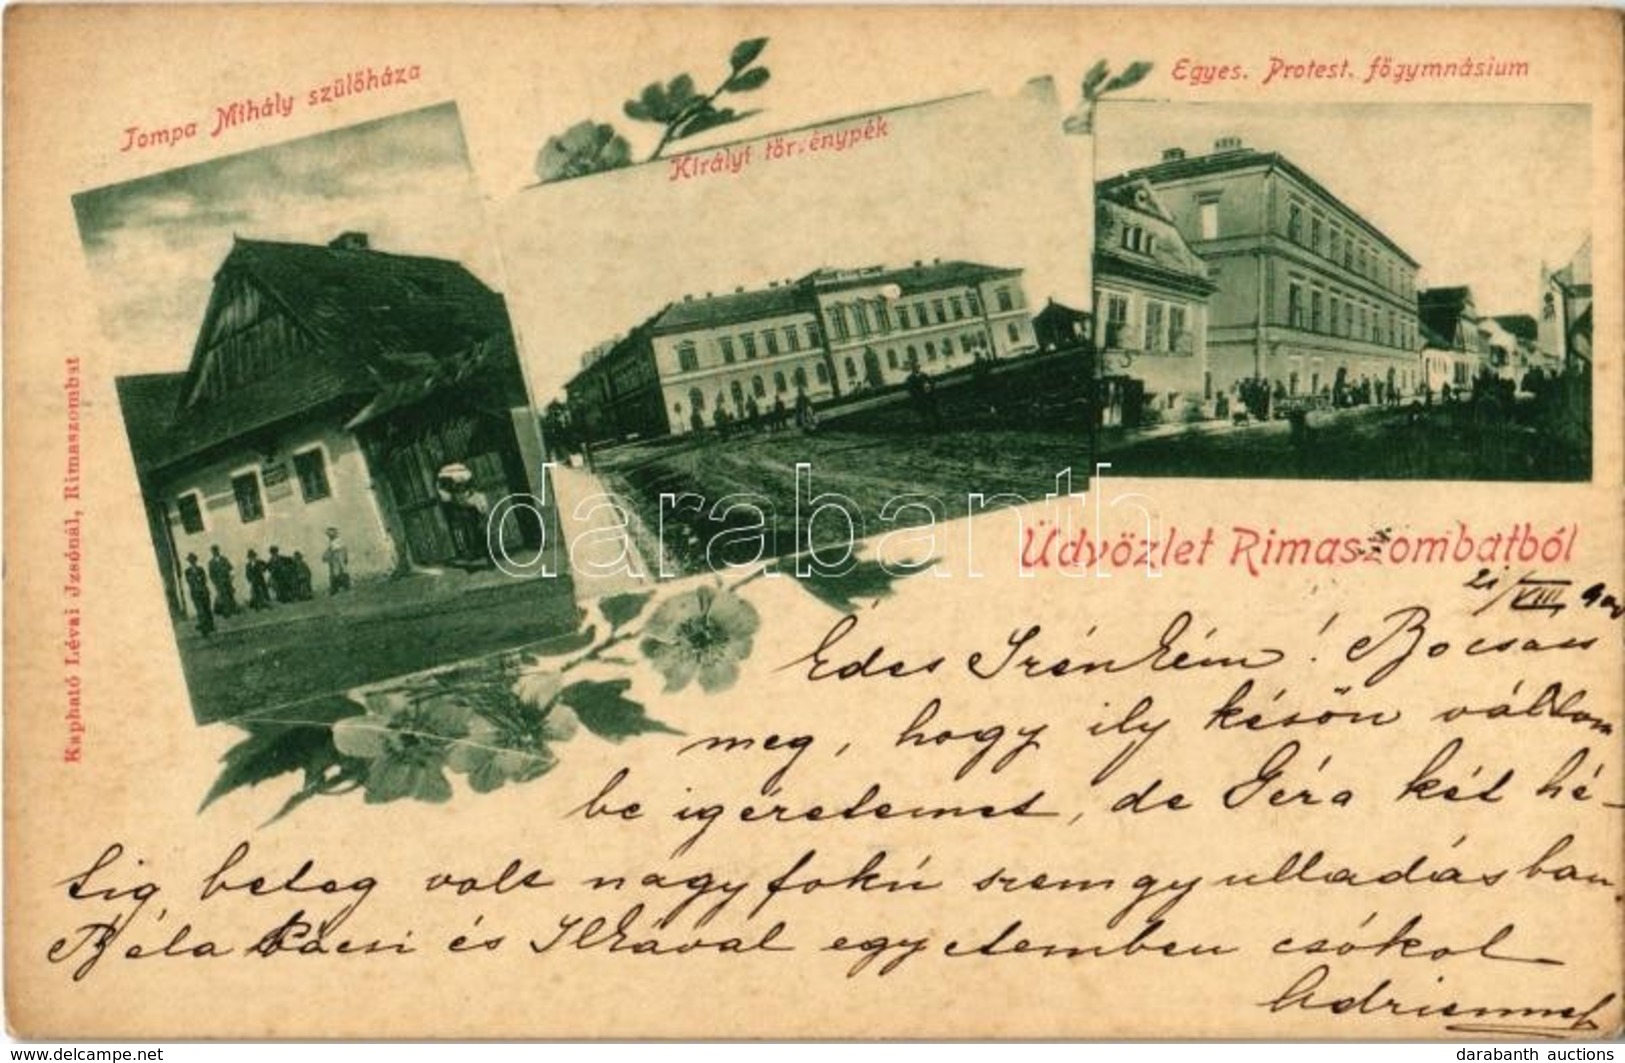 Tompa Mihály szülőháza
Királyi törvénypék
Egyes. Protest. főgymnásium
Kapható Lévai Jzsónál, Rimaszombat
darabanth
Üdvözlet Rimaszombatból
21/VIII 900
Édes Irénkém! Bocsass
meg, hogy ily későn váltom
be igéretemet, de Géra két hé-
tig beteg volt nagyfokú szemgyulladásban.
Béla bácsi és Ilkával egyetemben csókol
Adriennet
darabanth auctions © www.darabanth.com